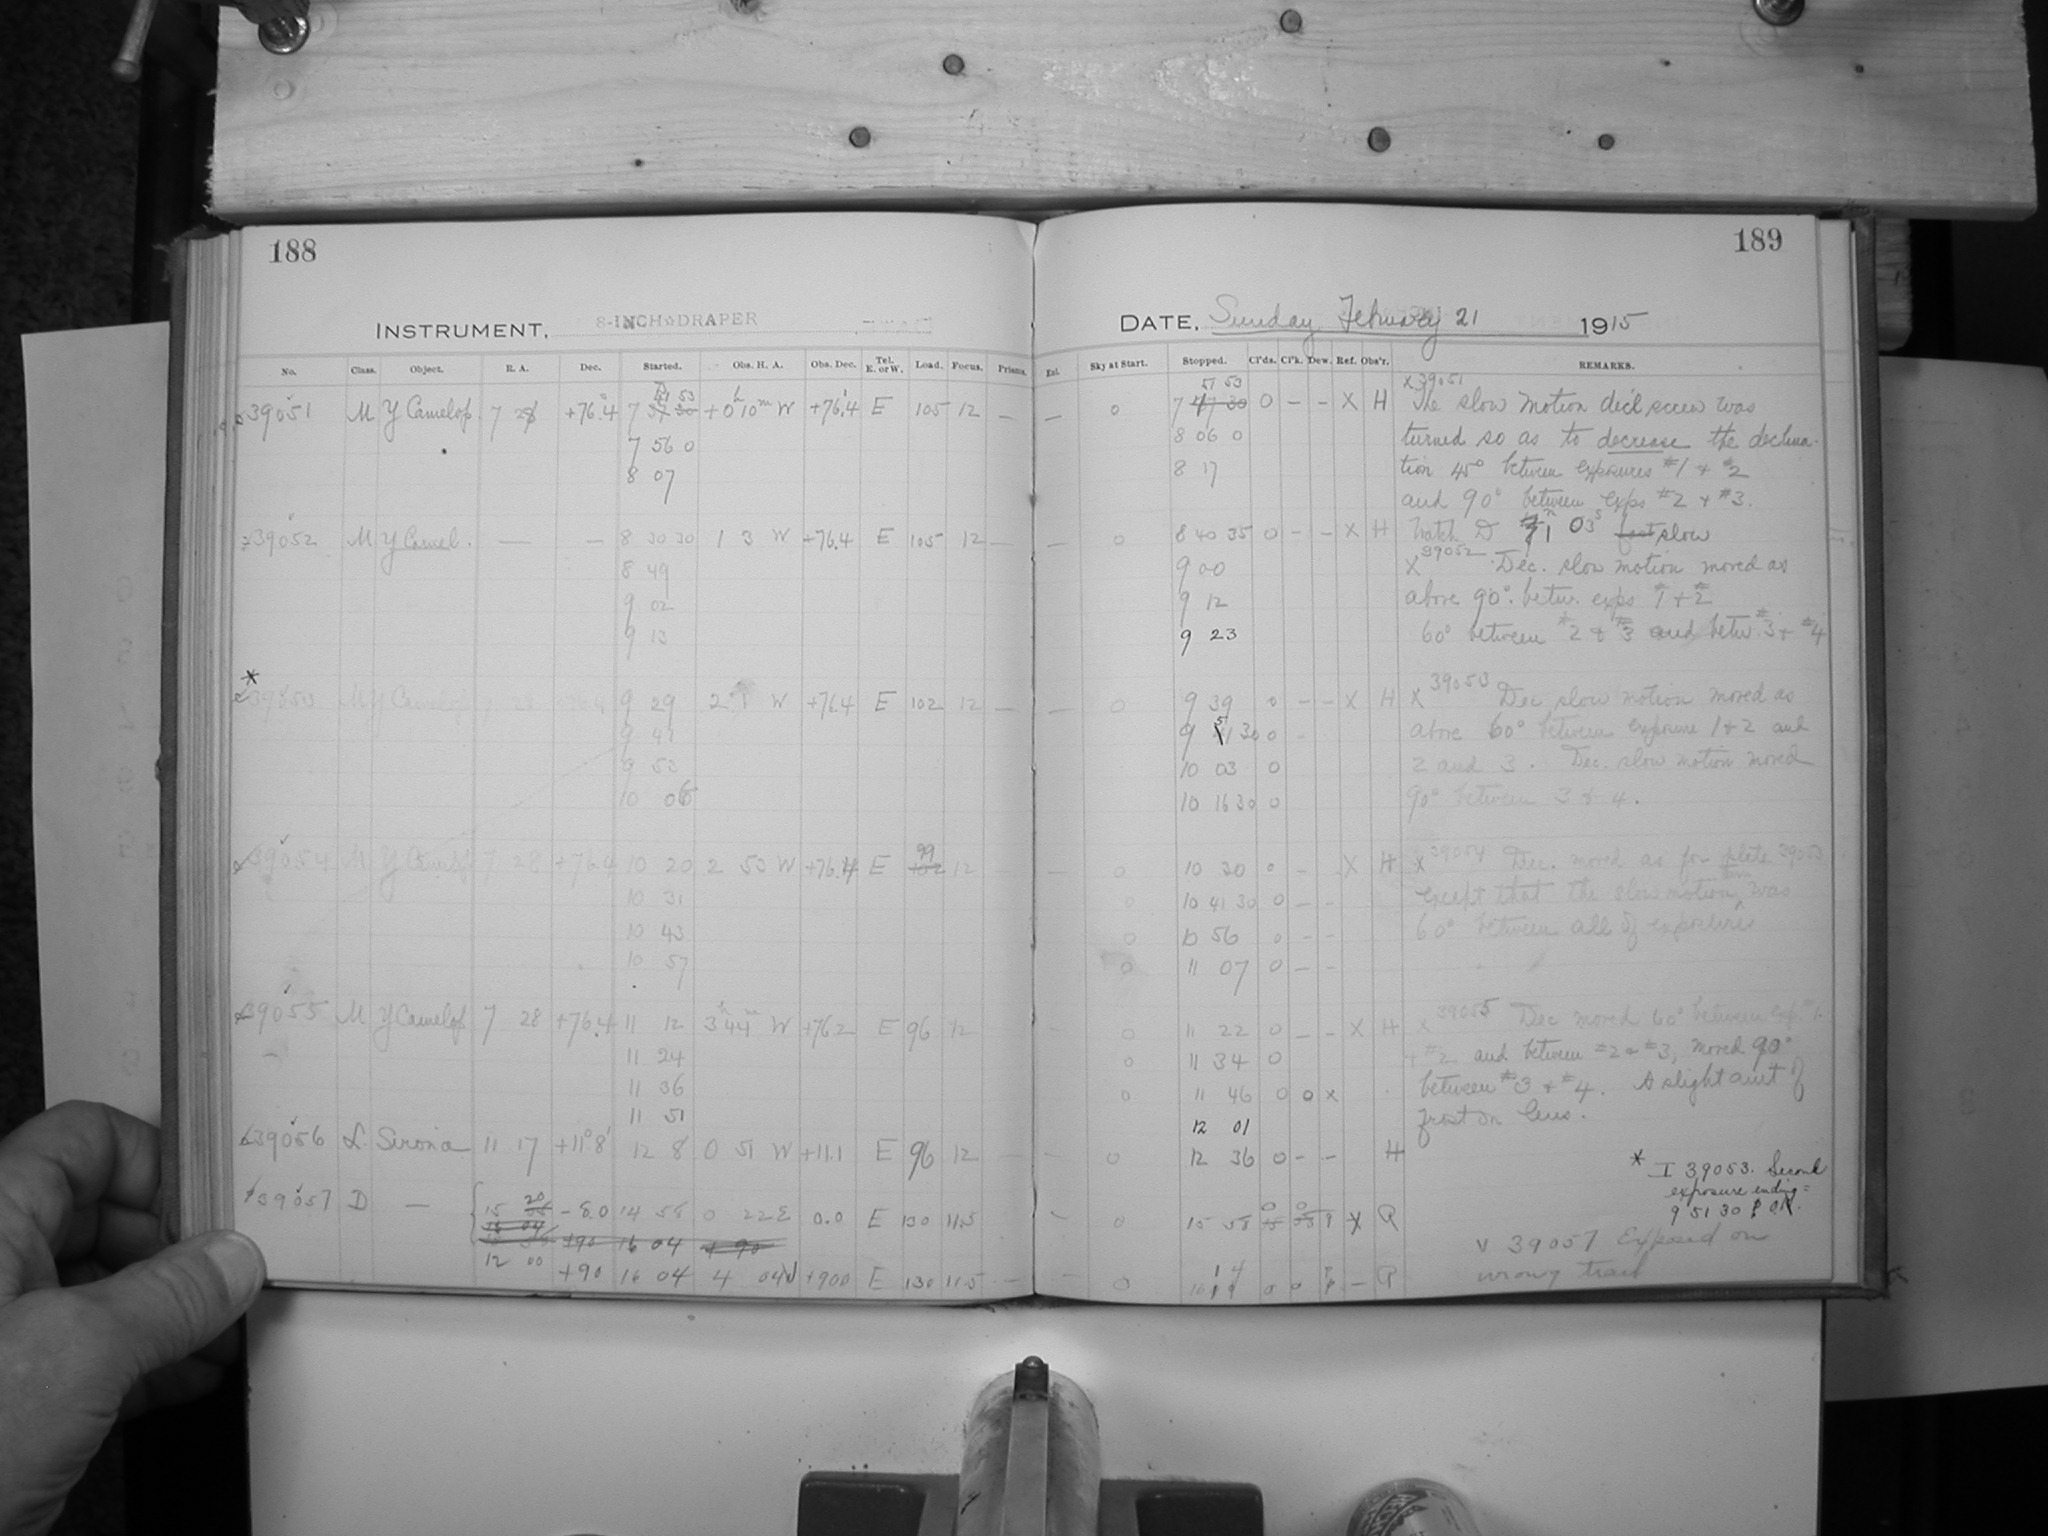 188
189
INSTRUMENT, 8-INCH DRAPER
DATE, Sunday February 21 1915
No. Class. Object. R. A. Dec. Started. Obs. H. A. Obs. Dec. Tel. E. or W. Load. Focus. Prisms. Ext. Sky at Start. Stopped. Cl'ds. Cl'k. Dew. Ref. Obs'r. REMARKS.
39051 M Y Camelop. 7 28 +76.4 7 +0h 10m W +76.4 E 105 12 — — 0 7 51 53 0 - - X H X 39051
The slow motion decl screw was
7 56 0 8 06 0 turned so as to decrease the declina-
8 07 8 17 tion 45° between exposures #1 + #2
and 90° between exps #2 + #3.
39052 M Y Camel. — — 8 30 30 1 3 W +76.4 E 105 12 — — 0 8 40 35 0 - - X H Watch D 1 03s slow
8 49 9 00 X 39052 Dec. slow motion moved as
9 02 9 12 above 90° betw. exps #1 + #2
9 13 9 23 60° between #2 & #3 and betw #3 + #4
*
39053 M Y Camelop 7 28 +76.4 9 29 2 1 W +76.4 E 102 12 — — 0 9 39 0 - - X H X 39053 Dec slow motion moved as
9 41 9 51 30 0 - above 60° between exposure 1 & 2 and
9 53 10 03 0 2 and 3. Dec. slow motion moved
10 06 10 16 30 0 90° between 3 & 4.
39054 M Y Camelop 7 28 +76.4 10 20 2 53 W +76.4 E 99 12 — — 0 10 30 0 - X H X 39054 Dec. moved as for plate 39053
10 31 0 10 41 30 0 - - except that the slow motion turn was
10 43 0 10 56 0 - - 60° between all of exposures
10 57 0 11 07 0 - -
39055 M Y Camelop 7 28 +76.4 11 12 3h 44m W +76.2 E 96 12 0 11 22 0 - - X H X 39055 Dec moved 60° between exp. #1
11 24 0 11 34 0 + #2 and between #2 & #3, moved 90°
11 36 0 11 46 0 0 x between #3 + #4. A slight amt of
11 51 12 01 frost on lens.
39056 L Sirona 11 17 +11° 8' 12 8 0 51 W +11.1 E 96 12 — — 0 12 36 0 - - H
* I 39053. Second
exposure ending =
9 51 30 O.K.
39057 D — 15 20 -8.0 14 58 0 22 E 0.0 E 130 11.5 — 0 15 58 X P
+90 16 04 + 90 v 39057 Exposed on
12 00 +90 16 04 4 04 W +90 0 E 130 11.5 — — 0 16 14 0 0 — P wrong trail